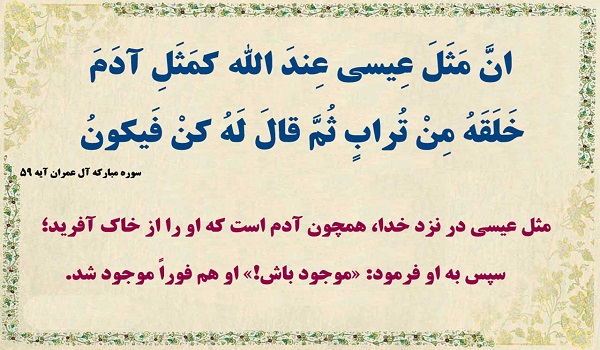 انَّ مَثَلَ عِیسی عِندَ الله کمَثَلِ آدَمَ
خَلَقَهُ مِنْ تُرابٍ ثُمَّ قالَ لَهُ کنْ فَیکونُ
سوره مبارکه آل عمران آیه ۵۹
مثل عیسی در نزد خدا، همچون آدم است که او را از خاک آفرید؛
سپس به او فرمود: «موجود باش!» او هم فوراً موجود شد.